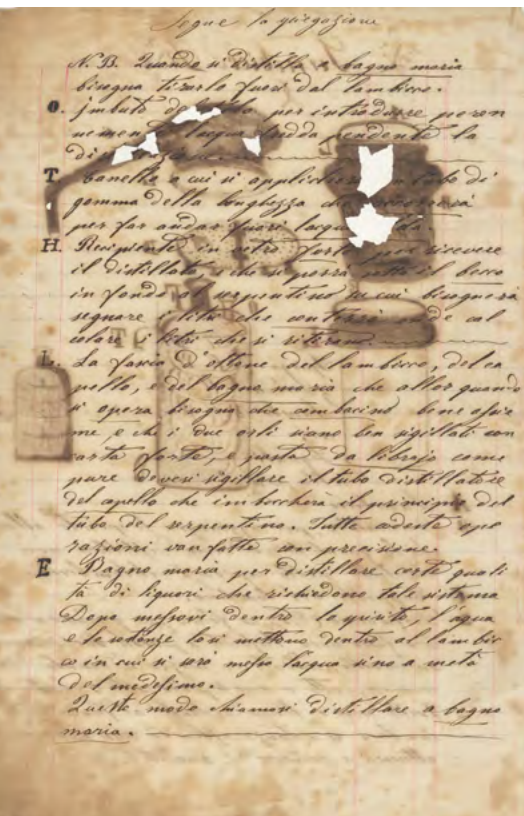 Segue la spiegazione
N. B. Quando si distilla a bagno maria
bisogna tirarlo fuori dal lambicco.
O. jmbuto per introdurre peren
nement l'acqua fredda pendente la
T. banella a cui si applicherà tubo di
gomma della lunghezza che
per far andar fuori l'acqua
H. Recipiente in vetro forte per ricevere
il distillato, e che si porrà sotto il becco
in fondo al serpentino in cui bisognerà
segnare i litri che conterrà onde cal
colare i litri che si
L. La fascia d'ottone del lambicco, del ca
pello, e del bagno maria che allor quando
si opera bisogna che combacino bene assie
me, e che i due orli siano ben sigillati con
carta forte, e pasta da librajo come
pure devesi sigillare il tubo distillatore
del capello che imboccherà il principio del
tubo del serpentino. Tutte ope
razioni van fatte con precisione.
E Bagno maria per distillare certe quali
tà di liquori che richiedono tale sistema
Dopo messovi dentro lo spirito, l'aqua
e le so si mettono dentro al lambic
co in cui si sarà messo l'acqua sino a metà
del medesimo.
Questo modo chiamasi distillare a bagno
maria.